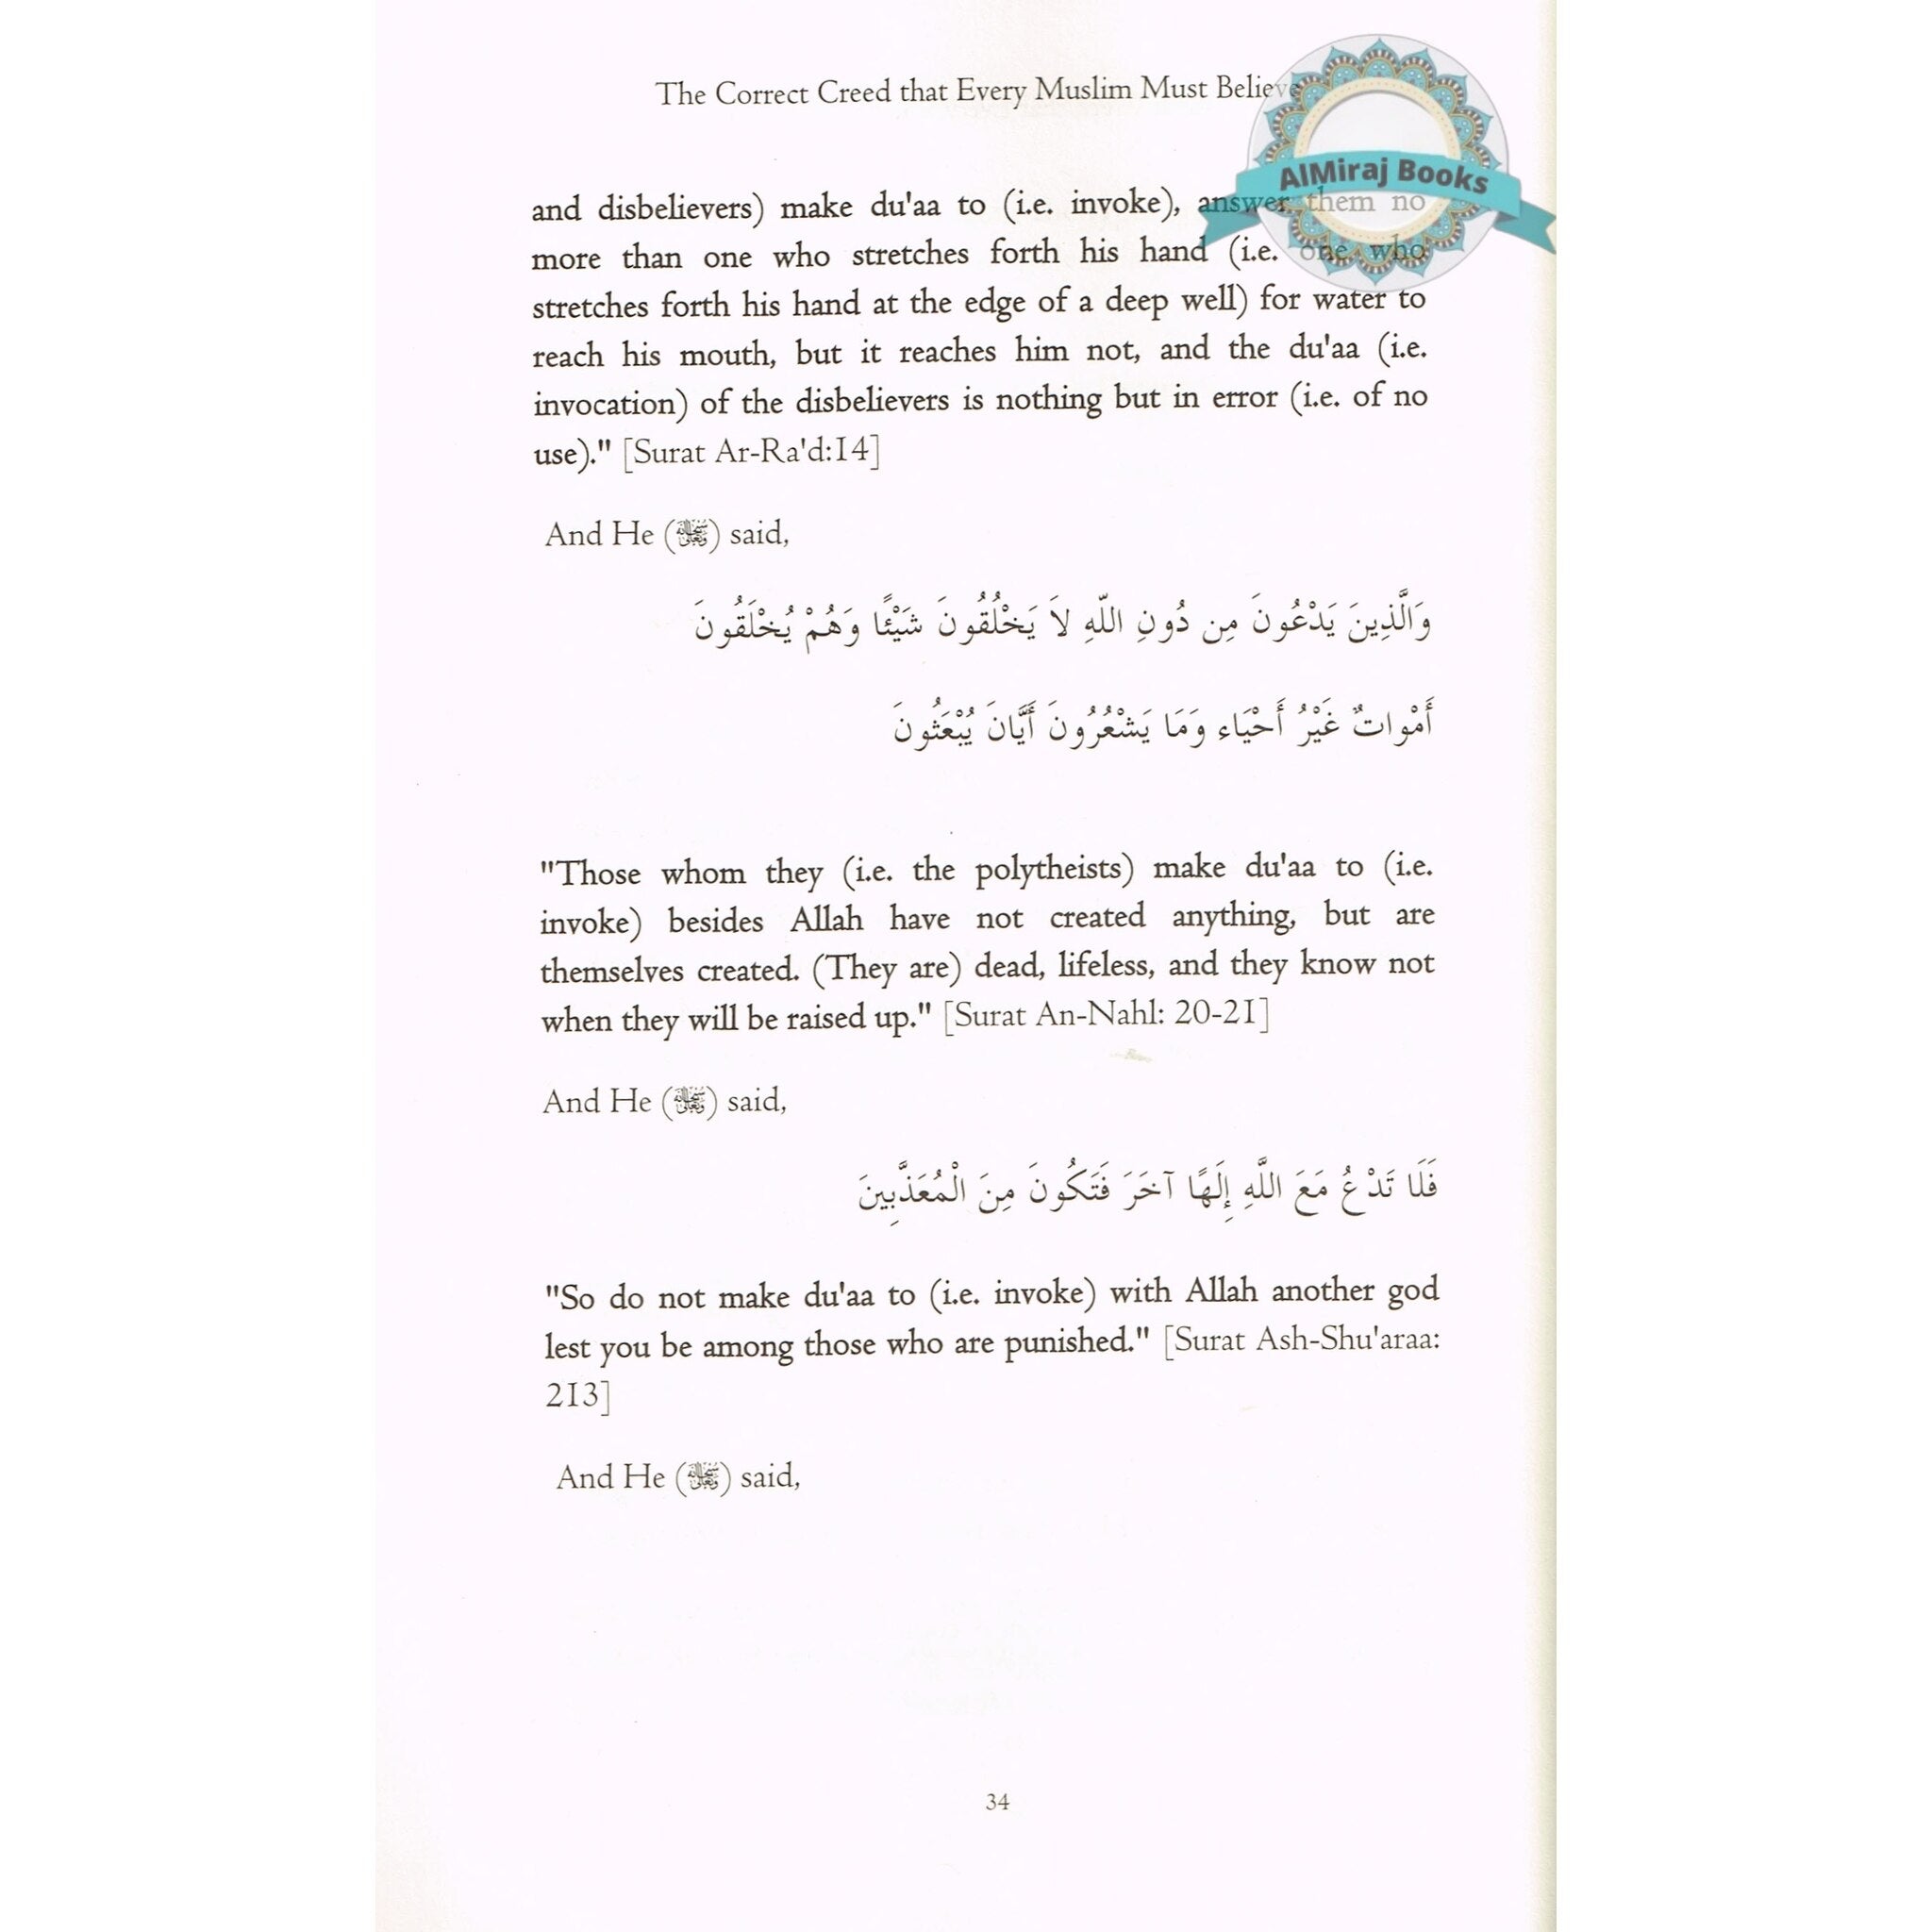 The Correct Creed that Every Muslim Must Believe
AlMiraj Books
and disbelievers) make du'aa to (i.e. invoke), answer them no
more than one who stretches forth his hand (i.e. one who
stretches forth his hand at the edge of a deep well) for water to
reach his mouth, but it reaches him not, and the du'aa (i.e.
invocation) of the disbelievers is nothing but in error (i.e. of no
use)." [Surat Ar-Ra'd:14]
And He (سبحانه وتعالى) said,
وَالَّذِينَ يَدْعُونَ مِن دُونِ اللّهِ لاَ يَخْلُقُونَ شَيْئًا وَهُمْ يُخْلَقُونَ
أَمْواتٌ غَيْرُ أَحْيَاء وَمَا يَشْعُرُونَ أَيَّانَ يُبْعَثُونَ
"Those whom they (i.e. the polytheists) make du'aa to (i.e.
invoke) besides Allah have not created anything, but are
themselves created. (They are) dead, lifeless, and they know not
when they will be raised up." [Surat An-Nahl: 20-21]
And He (سبحانه وتعالى) said,
فَلَا تَدْعُ مَعَ اللَّهِ إِلَهًا آخَرَ فَتَكُونَ مِنَ الْمُعَذَّبِينَ
"So do not make du'aa to (i.e. invoke) with Allah another god
lest you be among those who are punished." [Surat Ash-Shu'araa:
213]
And He (سبحانه وتعالى) said,
34